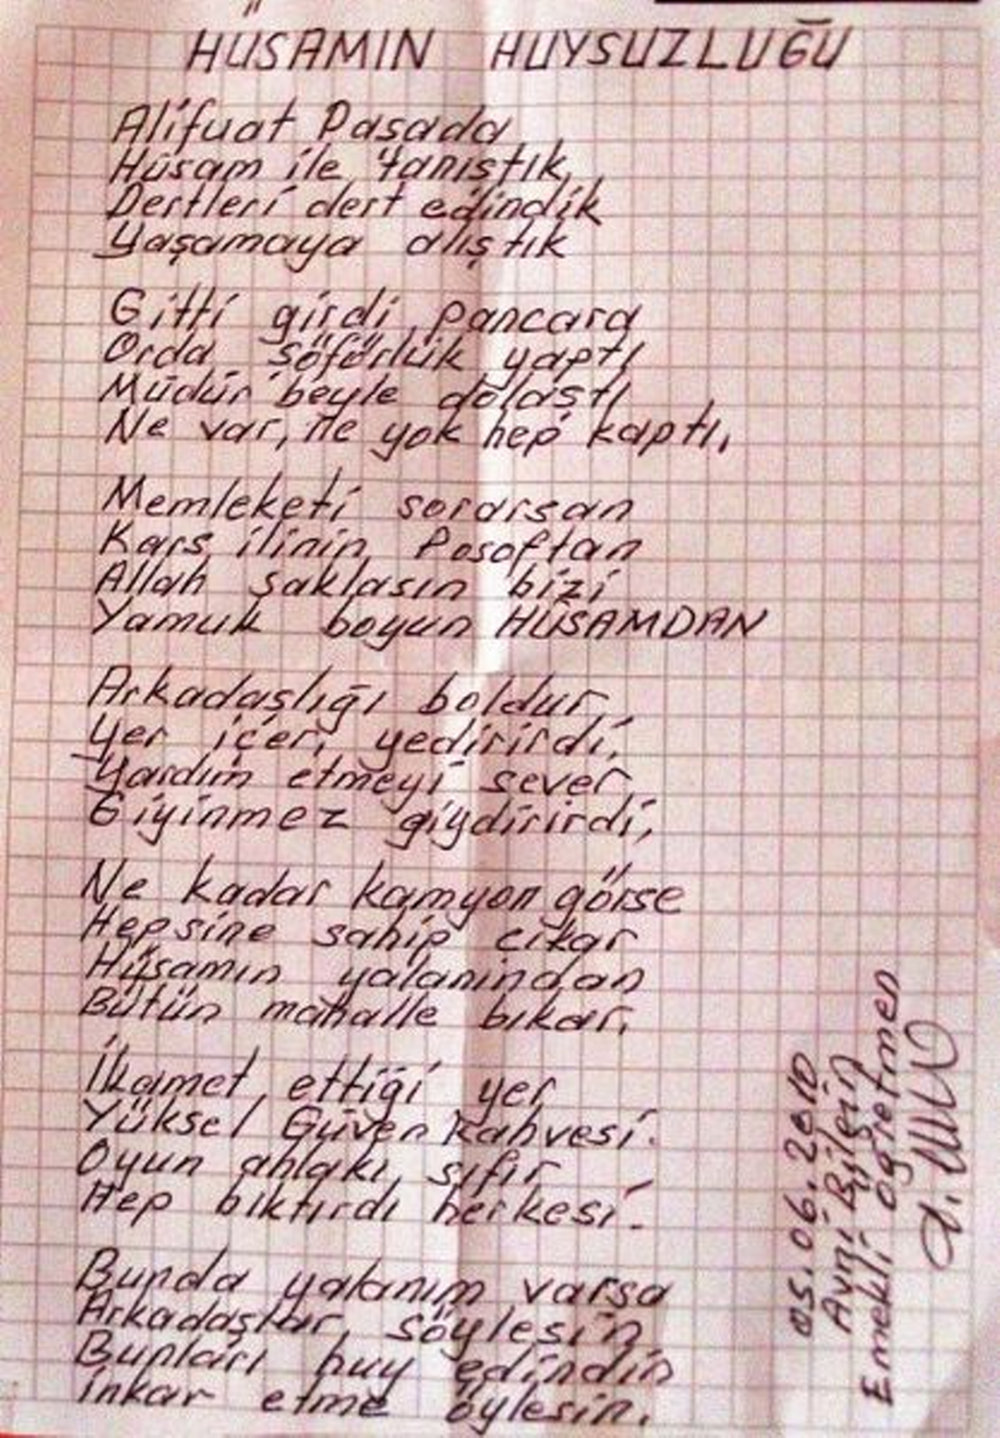 HÜSAMIN HUYSUZLUĞU
Alifuat Paşada
Hüsam ile tanıştık,
Dertleri dert edindik
Yaşamaya alıştık
Gitti girdi pancara
Orda şöförlük yaptı
Müdür beyle dolaştı
Ne var, ne yok hep kaptı,
Memleketi sorarsan
Kars ilinin Posoftan
Allah saklasın bizi
Yamuk boyun HÜSAMDAN
Arkadaşlığı boldur,
Yer içer, yedirirdi,
Yardım etmeyi sever
Giyinmez giydirirdi,
Ne kadar kamyon görse
Hepsine sahip çıkar
Hüsamın yalanından
Bütün mahalle bıkar,
İkamet ettiği yer
Yüksel Güven kahvesi.
Oyun ahlakı sıfır
Hep bıktırdı herkesi.
Bunda yalanım varsa
Arkadaşlar söylesin
Bunları huy edindin
inkar etme öylesin.
05.06.2010
Avni Bilgin
Emekli öğretmen